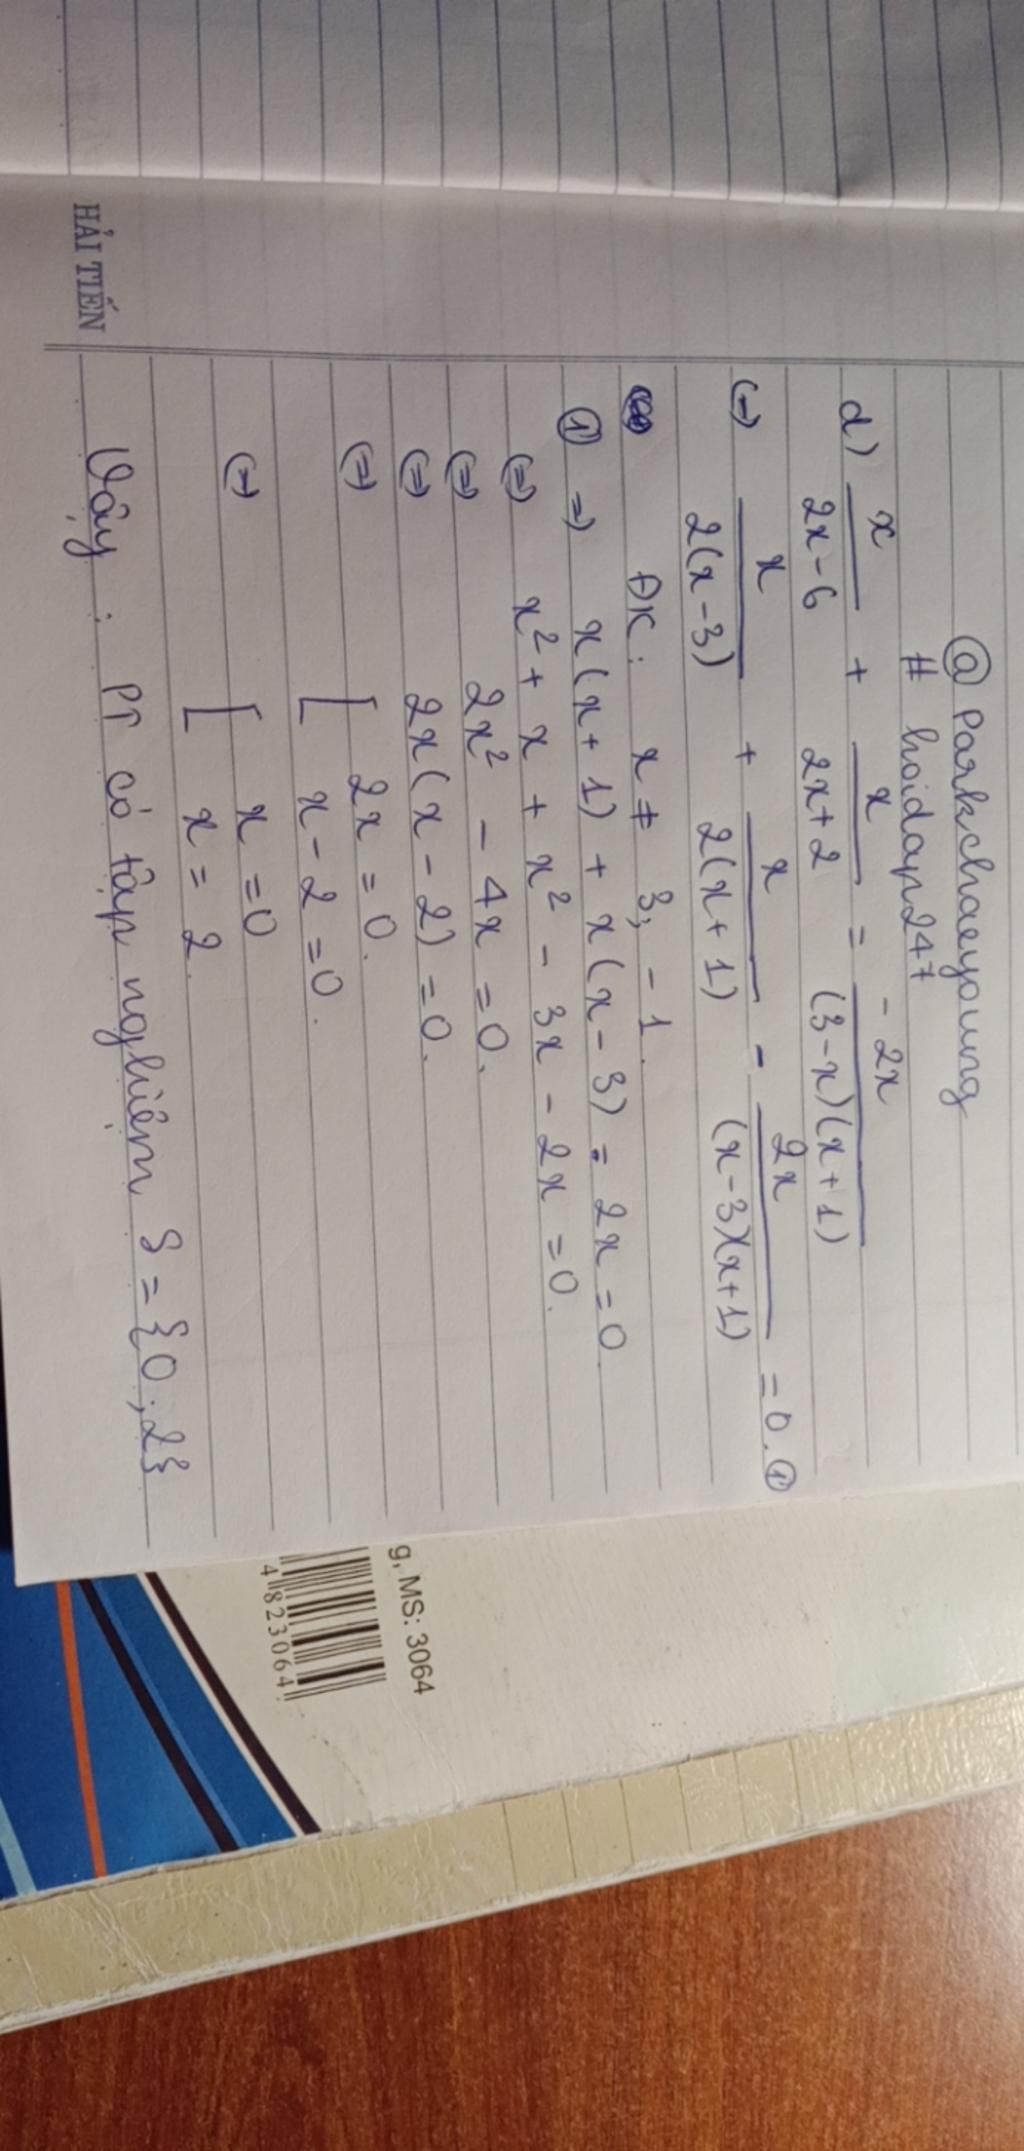 @ Parkchaeyoung
# hoidap247
d) x/(2x-6) + x/(2x+2) = -2x/((3-x)(x+1))
(=) x/(2(x-3)) + x/(2(x+1)) - 2x/((x-3)(x+1)) = 0. ①
ĐK: x ≠ 3, -1.
① => x(x+1) + x(x-3) = 2x = 0
(=) x² + x + x² - 3x - 2x = 0.
(=) 2x² - 4x = 0.
(=) 2x(x-2) = 0.
(=) [ 2x = 0.
x-2 = 0.
(=) [ x = 0
x = 2.
Vậy: PT có tập nghiệm S = {0; 2}
HẢI TIẾN
g, MS: 3064
4 823064